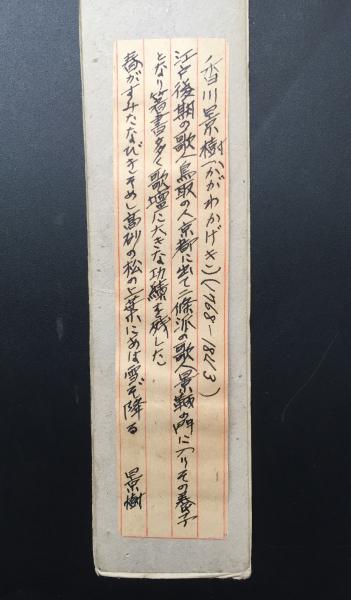 香川景樹(かがわかげき)(1768-1843)
江戸後期の歌人鳥取の人京都に出て二條派の歌人景に入りその養子
となり著書多く歌壇に大きな功績を残した
春がすみたなびきそめし高砂の松の上葉にあは雪ぞ降る 景樹